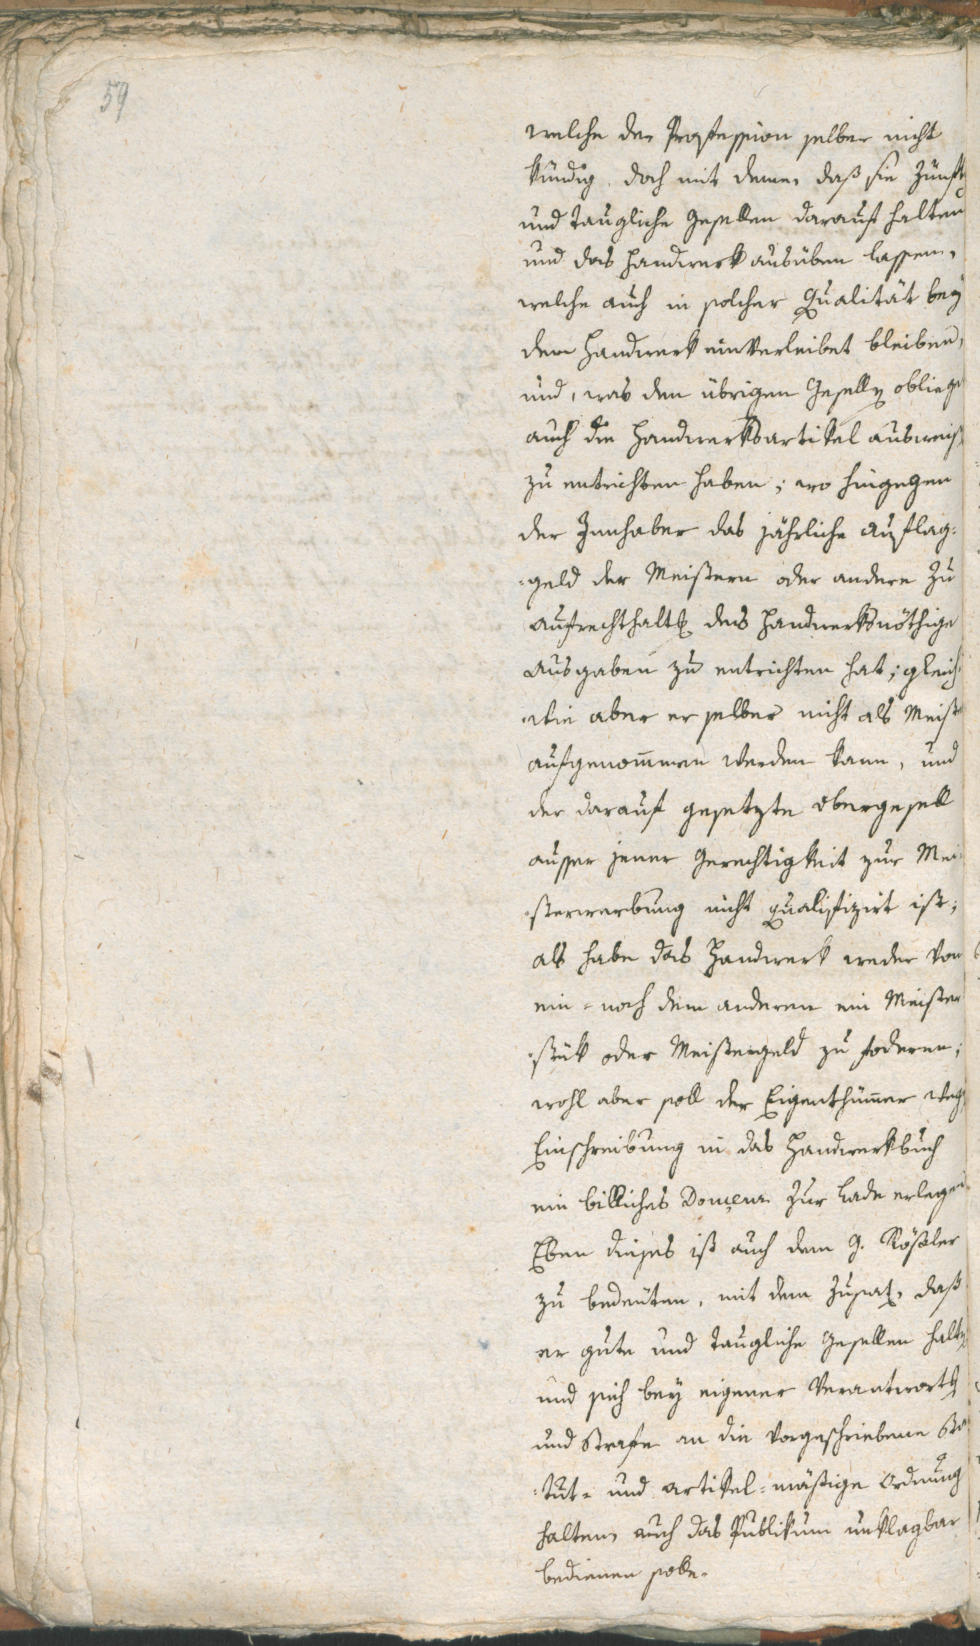 59
welche der Profession selber nicht
kündig, doch mit deme, daß sie zünftig
und taugliche Gesellen darauf halten
und das Handwerk ausüben lassen,
welche auch in solcher Qualität bey
dem Handwerk einverleibet bleiben,
und, was den übrigen Gesellen obliege
auch die Handwerksartikel ausweis
zu entrichten haben; wo hingegen
der Innhaber das jährliche Auflag-
-geld der Meistern oder andere zu
Aufrechthaltg des Handwerks nöthige
Ausgaben zu entrichten hat; gleich-
-wie aber er selber nicht als Meister
aufgenommen werden kann, und
der darauf gesetzte Obergesell
ausser jener Gerechtigkeit zur Mei-
-sterwerbung nicht qualifizirt ist;
als habe das Handwerk weder von
ein- noch dem anderen ein Meister
-stük oder Meistergeld zu foderen;
wohl aber soll der Eigenthümmer weg
Einschreibung in das Handwerkbuch
ein billiches Douceur zur Lade erlegen
Eben dieses ist auch dem G. Rößler
zu bedeuten, mit dem Zusatz, daß
er gute und taugliche Gesellen halte
und sich bey eigener Verantwortg
und Strafe an die vorgeschriebene Sta
-tut- und artikel-mäßige Ordnung
halten, auch das Publikum unklagbar
bedienen solle.